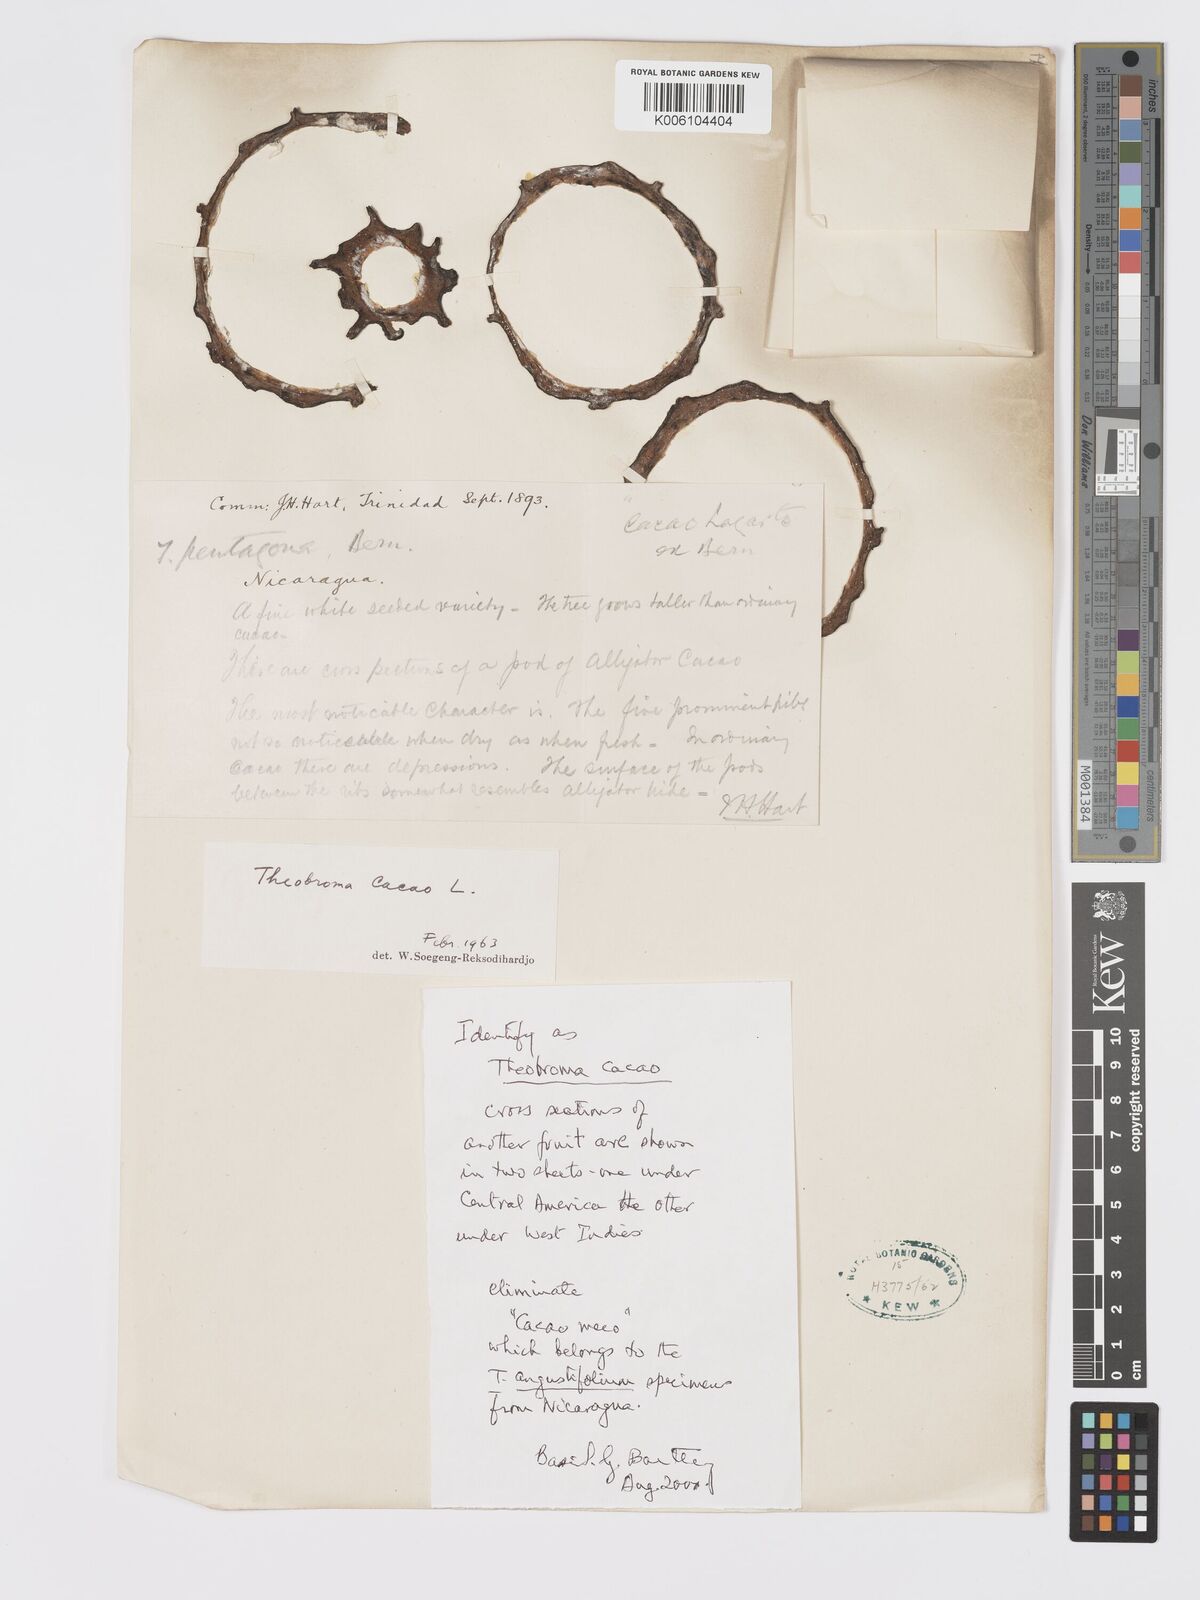 ROYAL BOTANIC GARDENS KEW
K006104404
Comm: J.H. Hart, Trinidad Sept. 1893.
"Cacao Lagarto"
ex Bern
T. pentagona, Bern.
Nicaragua.
A fine white seeded variety - The tree grows taller than ordinary
cacao -
These are cross sections of a pod of Alligator Cacao
The most noticable Character is. The five prominent ribs
not so noticeable when dry as when fresh - In ordinary
Cacao these are depressions. The surface of the pods
between the ribs somewhat resembles alligator hide =
J H. Hart
Theobroma cacao L.
Febr. 1963
det. W. Soegeng-Reksodihardjo
Identify as
Theobroma cacao
cross sections of
another fruit are shown
in two sheets - one under
Central America the other
under West Indies
eliminate
"Cacao meco"
which belongs to the
T. angustifolium specimens
from Nicaragua.
Basil. G. Bartley
Aug. 2000
ROYAL BOTANIC GARDENS
15
H3775/62
KEW
inches
centimetres
Density
Don Williams
M001384
Kew
Royal Botanic Gardens
copyright reserved
0 1 2 3 4 5 6 7 8 9 10
cm